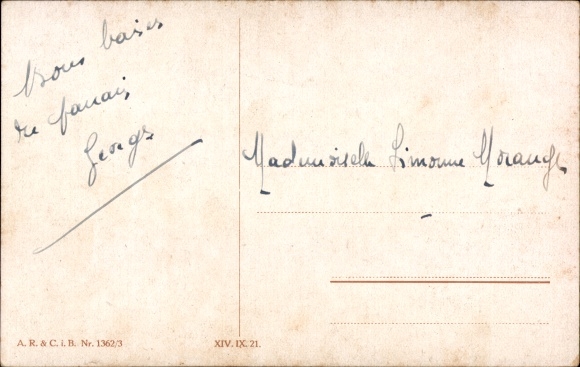 Bons baisers
du
George
Mademoiselle Simonne Morange
A. R. & C. i. B. Nr. 1362/3
XIV. IX. 21.